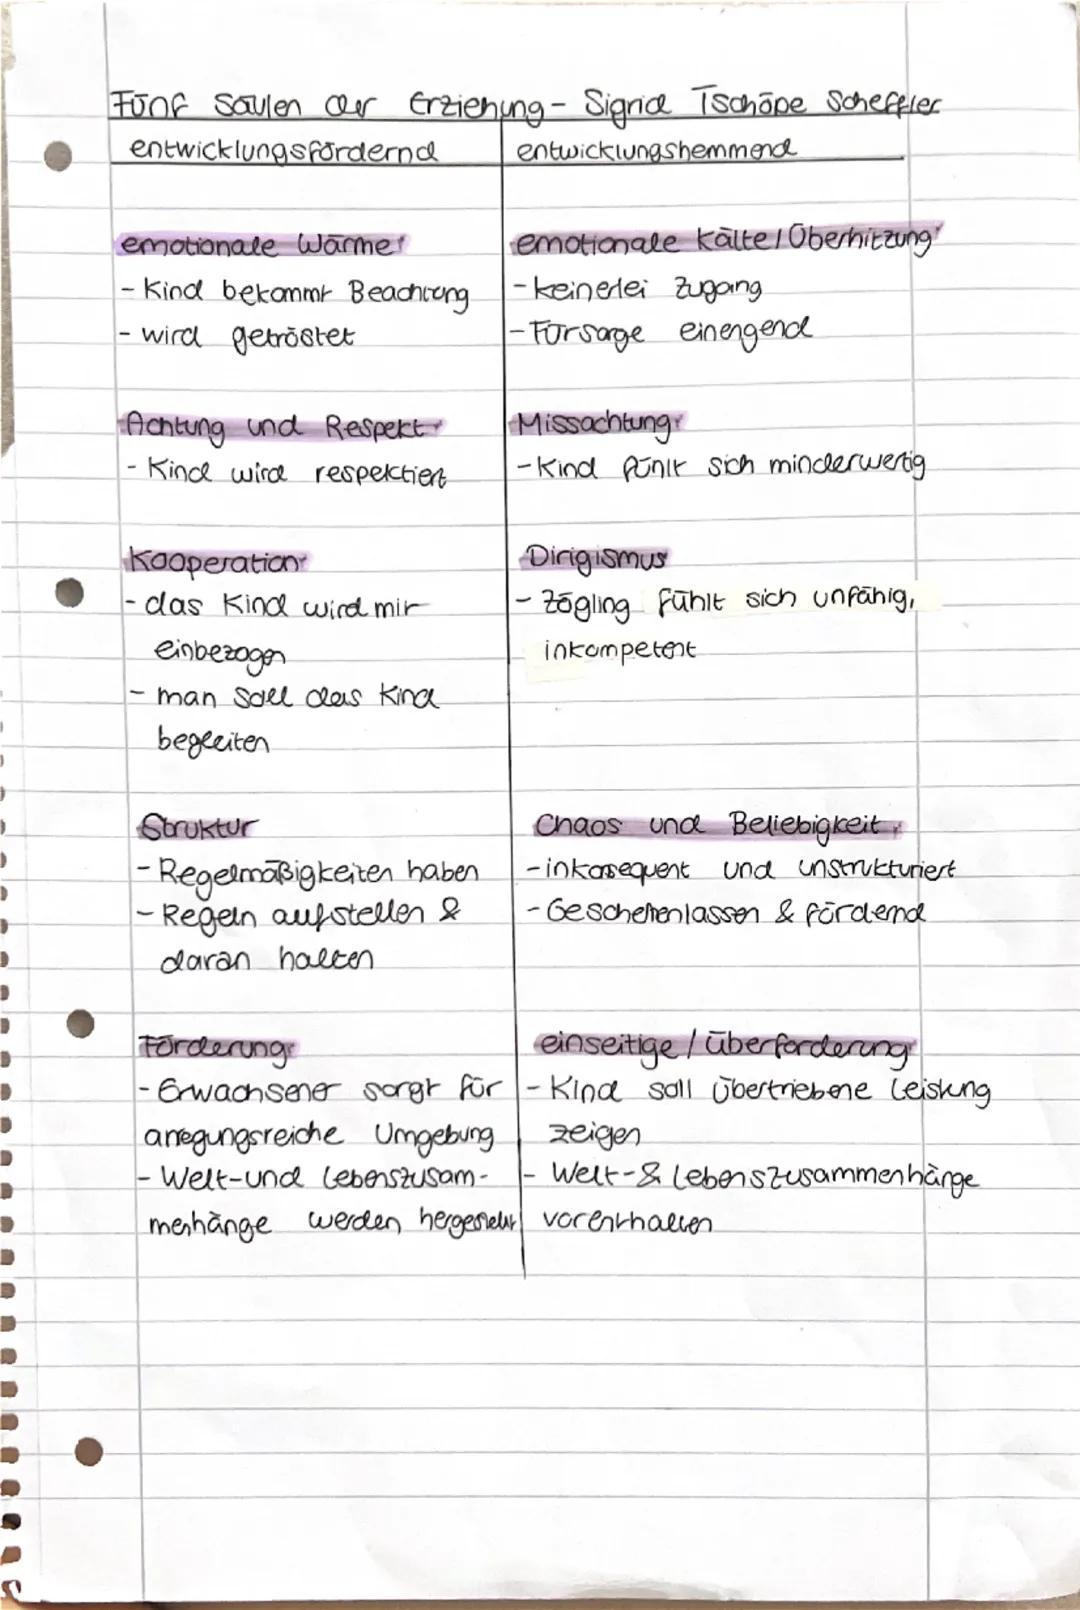 Fünf Säulen der Erziehung - Sigrid Tschöpe Scheffler
entwicklungsfördernd
entwicklungshemmend
emotionale Wärme:
- Kind bekommt Beachtung
- wird getröstet
emotionale Kälte/Überhitzung:
- keinerlei Zugang
- Fürsorge einengend
Achtung und Respekt:
- Kind wird respektiert
Missachtung:
- Kind fühlt sich minderwertig
Kooperation:
- das Kind wird mit
einbezogen
- man soll das Kind
begleiten
Dirigismus
- Zögling fühlt sich unfähig,
inkompetent
Struktur
- Regelmäßigkeiten haben
- Regeln aufstellen &
daran halten
Chaos und Beliebigkeit:
- inkonsequent und unstrukturiert
- Geschehenlassen & fördernd
Förderung:
- Erwachsener sorgt für
anregungsreiche Umgebung
- Welt-und Lebenszusam-
menhänge werden hergestellt
einseitige/überforderung:
- Kind soll übertriebene Leistung
zeigen
- Welt-& Lebenszusammenhänge
vorenthalten